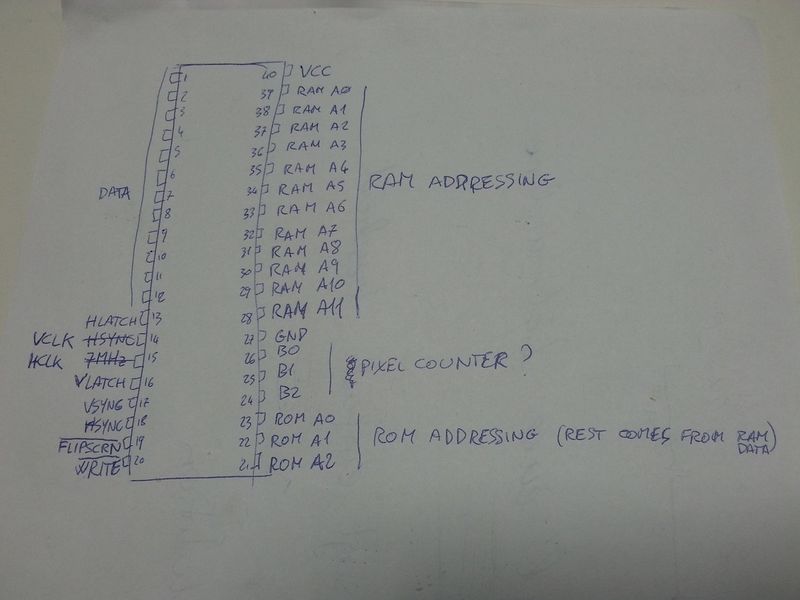 1 40 VCC
2 39 RAM A0
3 38 RAM A1
4 37 RAM A2
5 36 RAM A3
6 35 RAM A4 RAM ADDRESSING
DATA 7 34 RAM A5
8 33 RAM A6
9 32 RAM A7
10 31 RAM A8
11 30 RAM A9
12 29 RAM A10
HLATCH 13 28 RAM A11
VCLK HSYNC 14 27 GND
HCLK 7MHz 15 26 B0
VLATCH 16 25 B1 PIXEL COUNTER ?
VSYNC 17 24 B2
HSYNC 18 23 ROM A0
FLIPSCRN 19 22 ROM A1 ROM ADDRESSING (REST COMES FROM RAM DATA)
WRITE 20 21 ROM A2